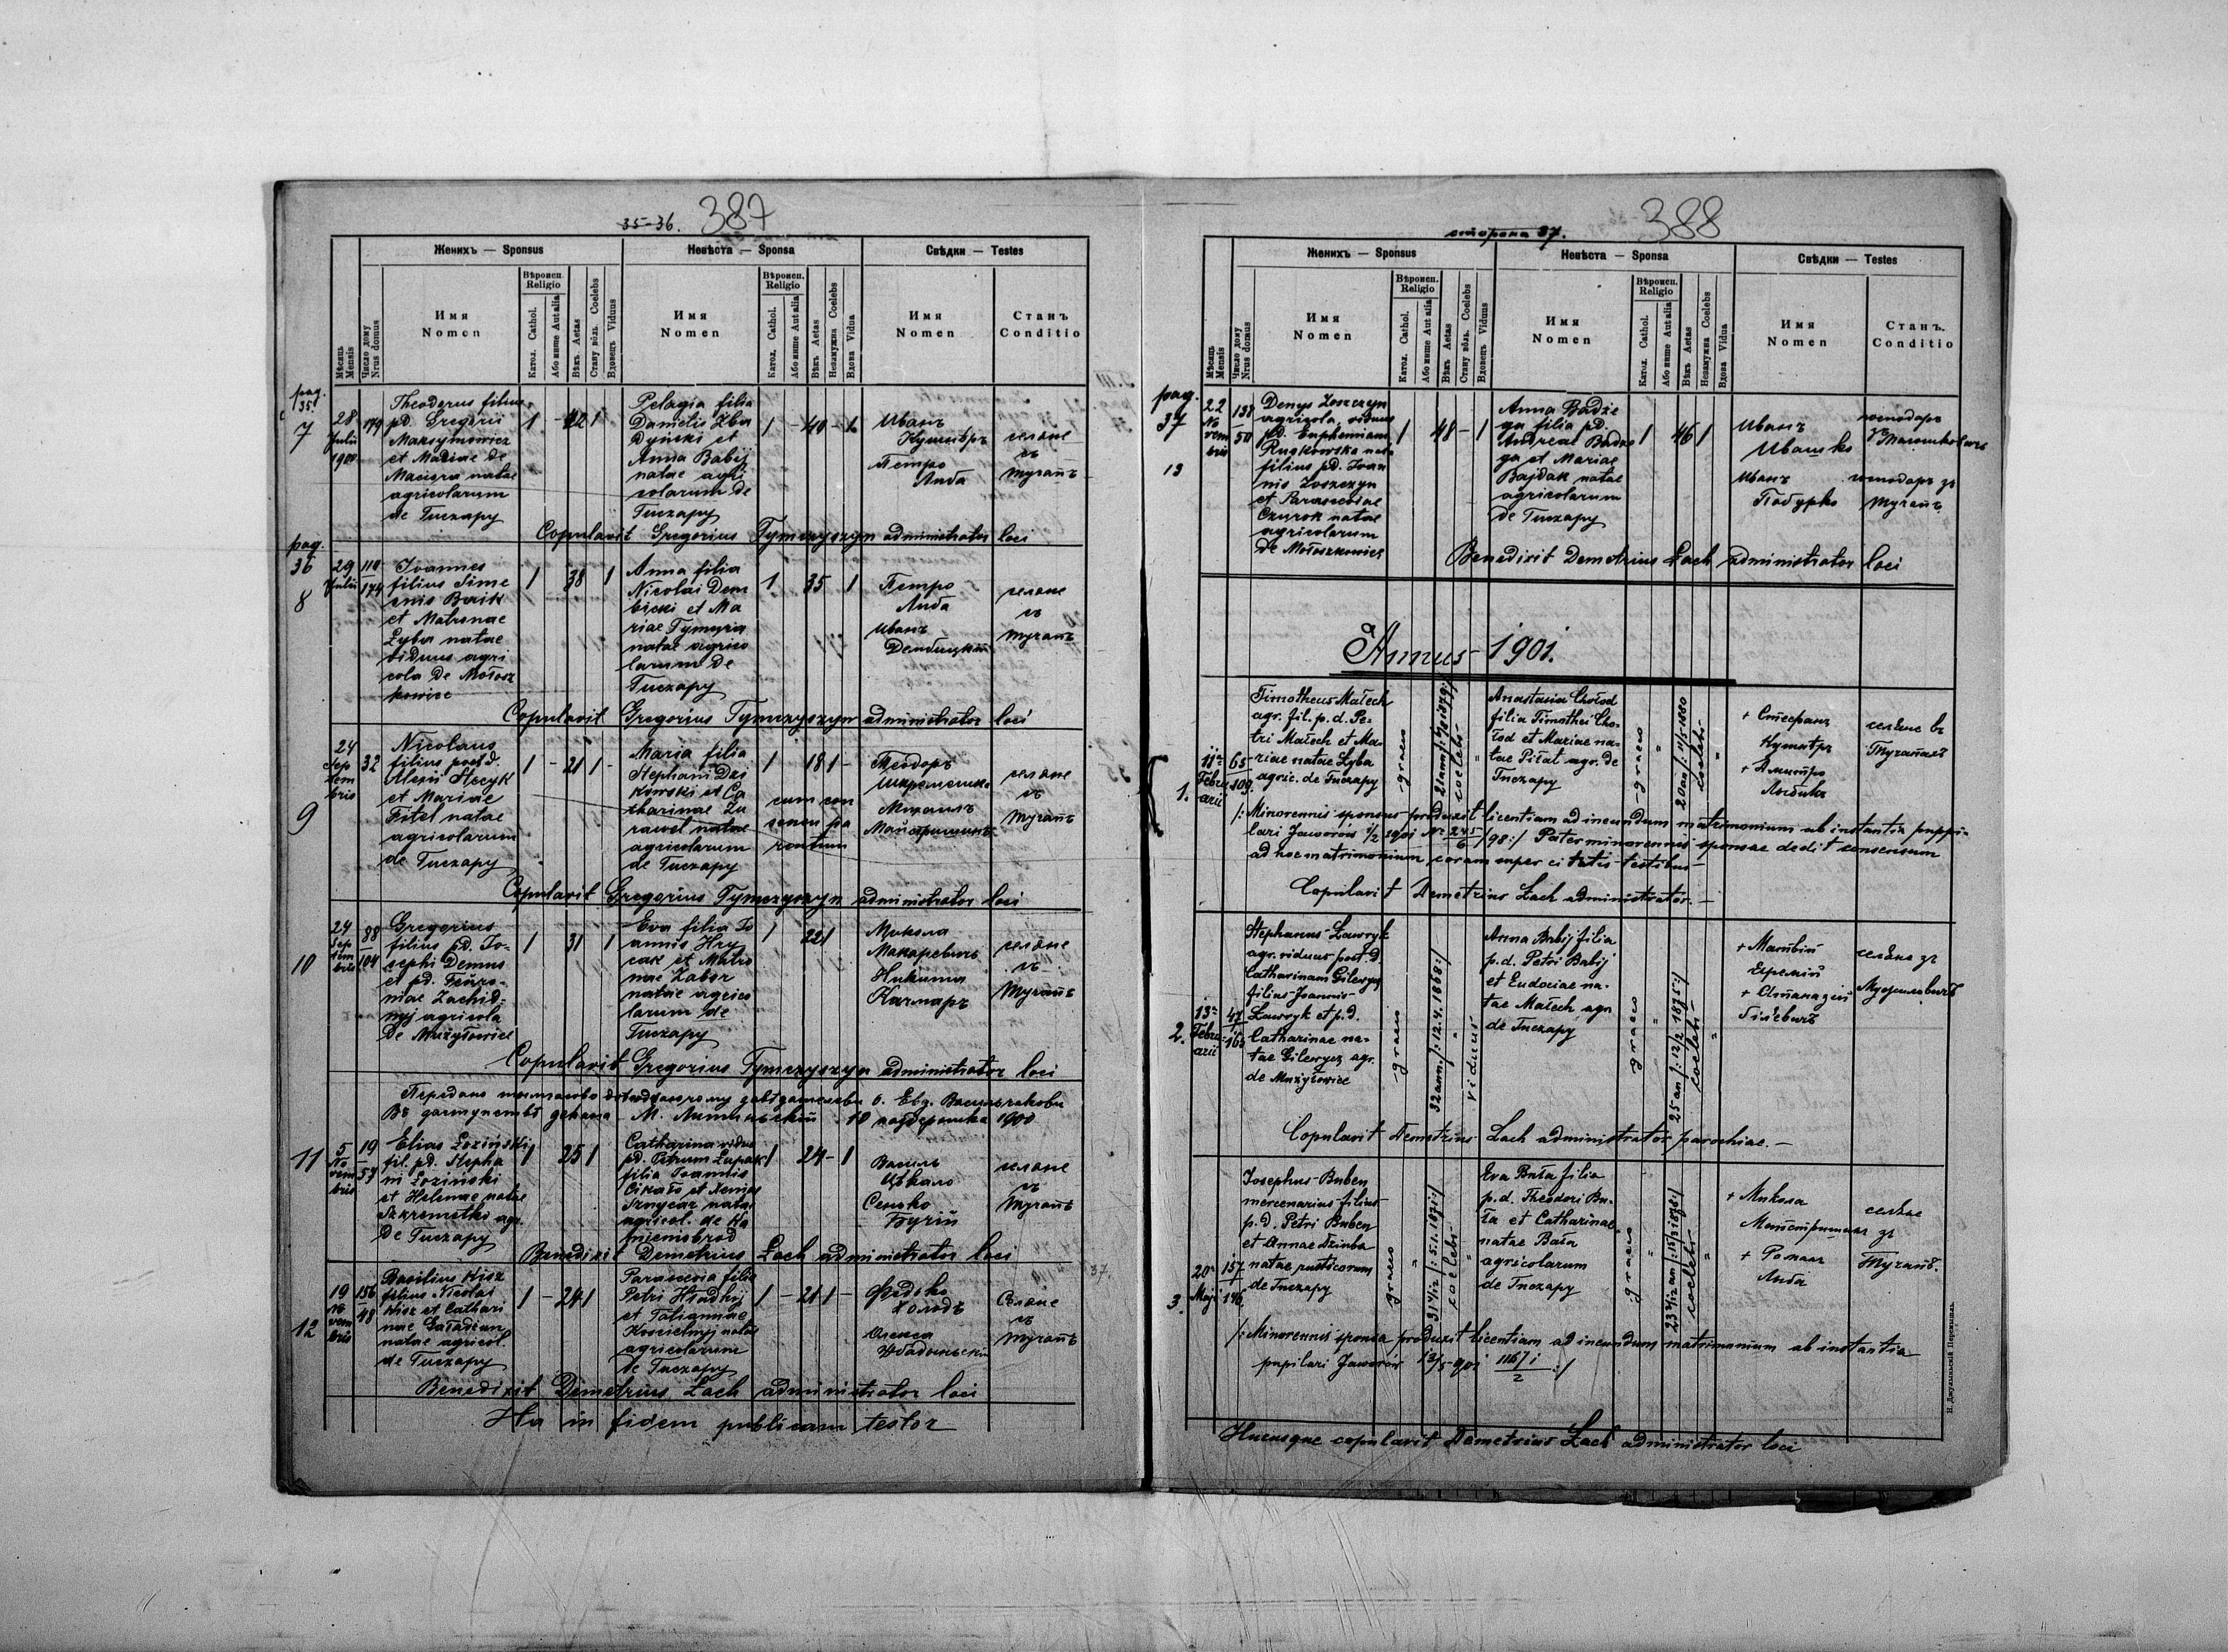 35-36. 387
Женихъ — Sponsus
Невѣста — Sponsa
Свѣдки — Testes
Мѣсяць Mensis
Число дому Nrus domus
Имя Nomen
Вѣроисп. Religio
Катол. Cathol.
Або инше Aut alia
Вѣкъ Aetas
Стану вôль. Coelebs
Вдовець Viduus
Имя Nomen
Вѣроисп. Religio
Катол. Cathol.
Або инше Aut alia
Вѣкъ Aetas
Незамужна Coelebs
Вдова Vidua
Имя Nomen
Станъ Conditio
pag. 35.
7
28 Julii 1900
174
Theodorus filius
pd. Gregorii
Maksymowicz
et Mariae de
Maciura natae
agricolarum
de Tuczapy
1 - 42 1
Pelagia filia
Danielis Zba
dyński et
Anna Babij
natae agri
colarum de
Tuczapy
1 - 40 - 1
Иванъ
Кушнѣръ
Петро
Либа
селяне
зъ
Тучапъ
Copulavit Gregorius Tymczyszyn administrator loci
pag. 36
8
29 Julii
110
174
Joannes
filius Sime
onis Baik
et Matronae
Zyba natae
viduus agri
cola de Mołosz
kowice
1 38 1
Anna filia
Nicolai Dem
bicki et Ma
riae Tymyria
natae agrico
larum de
Tuczapy
1 35 1
Петро
Либа
Иванъ
Дембицкій
селяне
зъ
Тучапъ
Copulavit Gregorius Tymczyszyn administrator loci
9
24 Sep tem bris
32
Nicolaus
filius post d.
Alexii Stecyk
et Mariae
Fitel natae
agricolarum
de Tuczapy
1 - 21 1 -
Maria filia
Stephani Dzi
kowski et Ca
tharinae Zu
rawel natae
agricolarum
de Tuczapy
1 18 1 -
cum con
sensu pa
rentum
Теодоръ
Шкреметко
Михаилъ
селяне
зъ
Тучапъ
Copulavit Gregorius Tymczyszyn administrator loci
10
24 Sep tem bris
88
104
Gregorius
filius pd. Jo-
sephi Demus
et pd. Feuro-
niae Zachid-
nyj agricola
de Mużyłowice
1 31 1
Eva filia Jo
annis Hry
cak et Matro
nae Zabor
natae agrico
larum de
Tuczapy
1 22 1
Микола
Макаревичъ
Никита
Качмаръ
селяне
зъ
Тучапъ
Copulavit Gregorius Tymczyszyn administrator loci
о. Евг. Васильчакови
Въ заступствѣ декана М. Липинскій 10 1900
11
5 No vem bris
19
57
Elias Łoziński
fil. pd. Stepha
ni Łoziński
et Helenae natae
Szkremetko agr.
de Tuczapy
1 25 1
Catharina vidua
pd. Petrum Łupak
filia Joannis
Cikało et Xeniae
natae
agricol. de Ka
mienobrod
1 24 - 1
Василь
Цѣкало
Сенько
Бугій
селяне
зъ
Тучапъ
Benedixit Demetrius Łach administrator loci
12
19 No vem bris
156
48
Basilius Kisz
filius Nicolai
Kisz et Cathari
nae Gaładian
natae agricol.
de Tuczapy
1 - 24 1
Parascevia filia
Petri Hładkij
et Tatiannae
Kościelnyj natae
agricolarum
de Tuczapy
1 - 21 1 -
Федько
Холодъ
Олекса
Збадыньскій
Селяне
зъ
Тучапъ
Benedixit Demetrius Łach administrator loci
Ita in fidem publicam testor
сторона 37. 388
Женихъ — Sponsus
Невѣста — Sponsa
Свѣдки — Testes
Мѣсяць Mensis
Число дому Nrus domus
Имя Nomen
Вѣроисп. Religio
Катол. Cathol.
Або инше Aut alia
Вѣкъ Aetas
Стану вôль. Coelebs
Вдовець Viduus
Имя Nomen
Вѣроисп. Religio
Катол. Cathol.
Або инше Aut alia
Вѣкъ Aetas
Незамужна Coelebs
Вдова Vidua
Имя Nomen
Станъ. Conditio
pag. 37
13
22 No vem bris
138
50
Denys Zoszczyn
agricola, viduus
pd. Euphemiam
Ruskowska nat.
filius pd. Joan
nis Zoszczyn
et Parasceviae
Czurok natae
agricolarum
de Mołoszkowice
1 48 - 1
Anna Badze
ga filia pd.
Andreae Badze
ga et Mariae
Bajdak natae
agricolarum
de Tuczapy
1 46 1
Иванъ
Ивашко
Иванъ
Побурко
господарь
господарь зъ
Тучапъ
Benedixit Demetrius Łach administrator loci
Annus 1901.
1.
11ª Febru arii
65
109.
Timotheus Małech
agr. fil. p. d. Pe-
tri Małech et Ma-
riae natae Zyba
agric. de Tuczapy
graeco
coelebs
Anastasia Chołod
filia Timothei Cho-
łod et Mariae na-
tae Pitał agr. de
Tuczapy
graeco
20 an /: 11/5 1880
coelebs
+ Стефанъ
Кушнѣръ
+ Дмитро
селяне въ
Тучапахъ
/: Minorennis sponsus produxit licentiam ad ineundum matrimonium ab instantia puppi-
lari Jaworów ½ 1901 Nr 245/6 /98 :/ Pater minorennis sponsae dedit consensum
ad hoc matrimonium coram super citatis testibus
Copulavit Demetrius Łach administrator. —
2.
13ª Febru arii
47
163
Stephanus Ławryk
agr. viduus post. d.
Catharinam Gilewycz
filius Joannis
Ławryk et p. d.
Catharinae na-
tae Gilewycz agr.
de Mużyłowice
graeco
32 ann. /: 12.4. 1868 :/
viduus
Anna Babij filia
p. d. Petri Babij
et Eudociae na-
tae Małech agr.
de Tuczapy
graeco
25 an /: 12/2 1875 :/
coelebs
+ Матвій
Еремій
+ Атаназій
Гілевичъ
селяне зъ
Мужиловичъ
Copulavit Demetrius Łach administrator parochiae. —
3.
20ª Maji
157
146.
Josephus Buben
mercenarius filius
p. d. Petri Buben
et Annae Dziuba
natae rusticorum
de Tuczapy
graeco
31 4/12 /: 5.1. 1871 :/
coelebs
Eva Buła filia
p. d. Theodori Bu-
ła et Catharinae
natae Bała
agricolarum
de Tuczapy
graeco
23 2/12 an /: 15/3 1878 :/
coelebs
+ Микола
+ Романъ
Либа
селяне
зъ
Тучапъ.
/: Minorennis sponsa produxit licentiam ad ineundum matrimonium ab instantia
pupilari Jaworów 13/5 901 11671/2 :/
Hucusque copulavit Demetrius Łach administrator loci